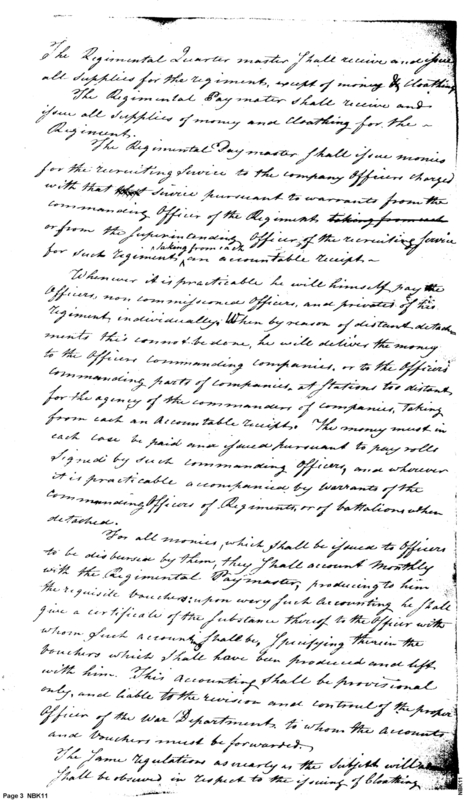 The Regimental Quarter master shall receive and issue
all supplies for the regiment, except of money & Cloathing
The Regimental Pay mater shall receive and
issue all supplies of money and Cloathing for the ~
Regiment.
The Regimental Pay master shall issue monies
for the recruiting service to the company Officers charged
with that service pursuant to warrants from the
commanding Officer of the Regiment taking from each
or from the Superintending Officer, of the recruiting service
taking from each
for such regiment, an accountable receipt. ~
Whenever it is practicable he will himself pay the
Officers, non commissioned Officers, and privates of his
regiment, individually: When by reason of distant detach
ments this cannot be done, he will deliver the money
to the Officers commanding companies, or to the Officers
commanding parts of companies, at Stations too distant
for the agency of the commanders of companies, taking
from each an accountable receipt. The money must in
each case be paid and issued pursuant to pay rolls
signed by such commanding Officers, and wherever
it is practicable accompanied by warrants of the
commanding Officers of Regiments, or of battalions when
detached.
For all monies, which shall be issued to Officers
to be disbursed by them, they shall account Monthly
with the Regimental Pay master, producing to him
the requisite vouchers: upon every such accounting he shall
give a certificate of the substance thereof to the Officer with
whom such account shall be, specifying therein the
vouchers which shall have been produced and left
with him. This accounting shall be provisional
only, and liable to the revision and controul of the proper
Officer of the War Department, to whom the accounts
and vouchers must be forwarded.
The same regulations as nearly as the Subject will
shall be observed in respect to the issuing of Cloathing
Page 3 NBK11
NBK11